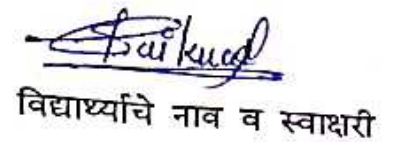 विद्यार्थ्याचे नाव व स्वाक्षरी